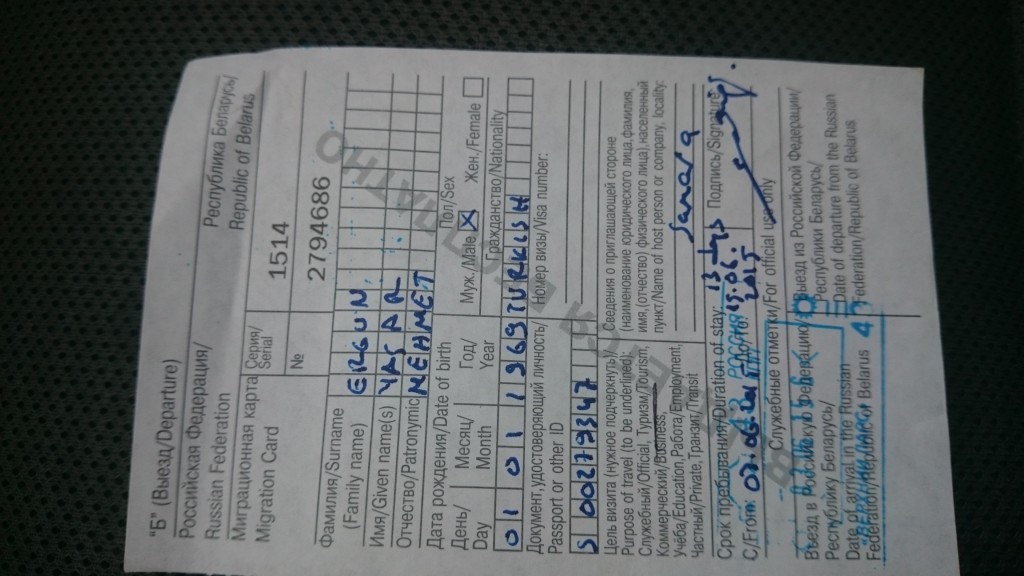 "Б" (Выезд/Departure)
Российская Федерация/
Russian Federation
Республика Беларусь/
Republic of Belarus
Миграционная карта
Migration Card
Серия/
Serial
1514
№
2794686
Фамилия/Surname
(Family name)
ERGUN
Имя/Given name(s)
YAŞAR
Отчество/Patronymic
MEHMET
Дата рождения/Date of birth
Пол/Sex
День/
Day
Месяц/
Month
Год/
Year
Муж./Male X
Жен./Female
01 01 1969
Гражданство/Nationality
TURKISH
Документ, удостоверяющий личность/
Passport or other ID
Номер визы/Visa number:
S 002773347
Цель визита (нужное подчеркнуть)/
Purpose of travel (to be underlined):
Служебный/Official, Туризм/Tourism,
Коммерческий/Business,
Учёба/Education, Работа/Employment,
Частный/Private, Транзит/Transit
Сведения о приглашающей стороне
(наименование юридического лица, фамилия,
имя, (отчество) физического лица), населенный
пункт/Name of host person or company, locality:
Samara
Срок пребывания/Duration of stay:
Подпись/Signature:
С/From:
2015
Служебные отметки/For official use only
Въезд в Российскую Федерацию/
Республику Беларусь/
Date of arrival in the Russian
Federation/Republic of Belarus
Выезд из Российской Федерации/
Республики Беларусь/
Date of departure from the Russian
Federation/Republic of Belarus